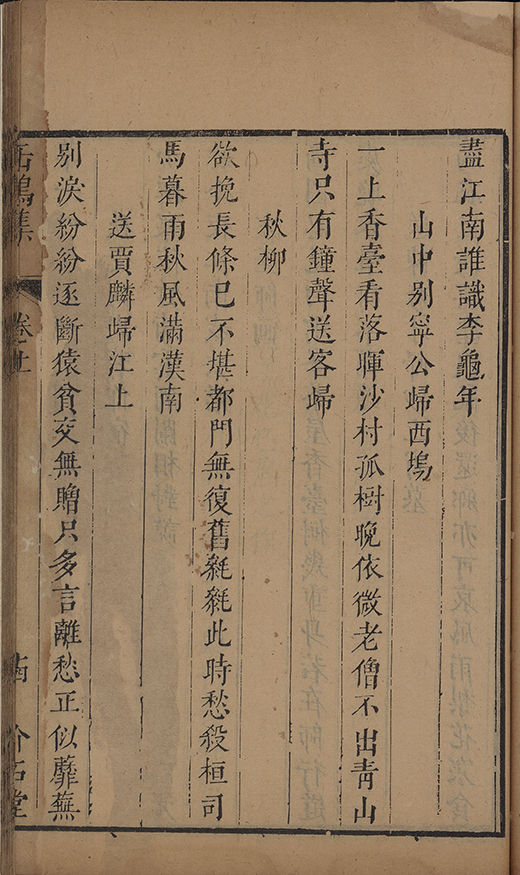 盡江南誰識李龜年
山中别寧公歸西塢
一上香臺看落暉沙村孤樹晚依微老僧不出靑山
寺只有鐘聲送客歸
秋柳
欲挽長條已不堪都門無復舊毿毿此時愁殺桓司
馬暮雨秋風滿漢南
送賈麟歸江上
别淚紛紛逐斷猿貧交無贈只多言離愁正似蘼蕪
卷十
介石堂